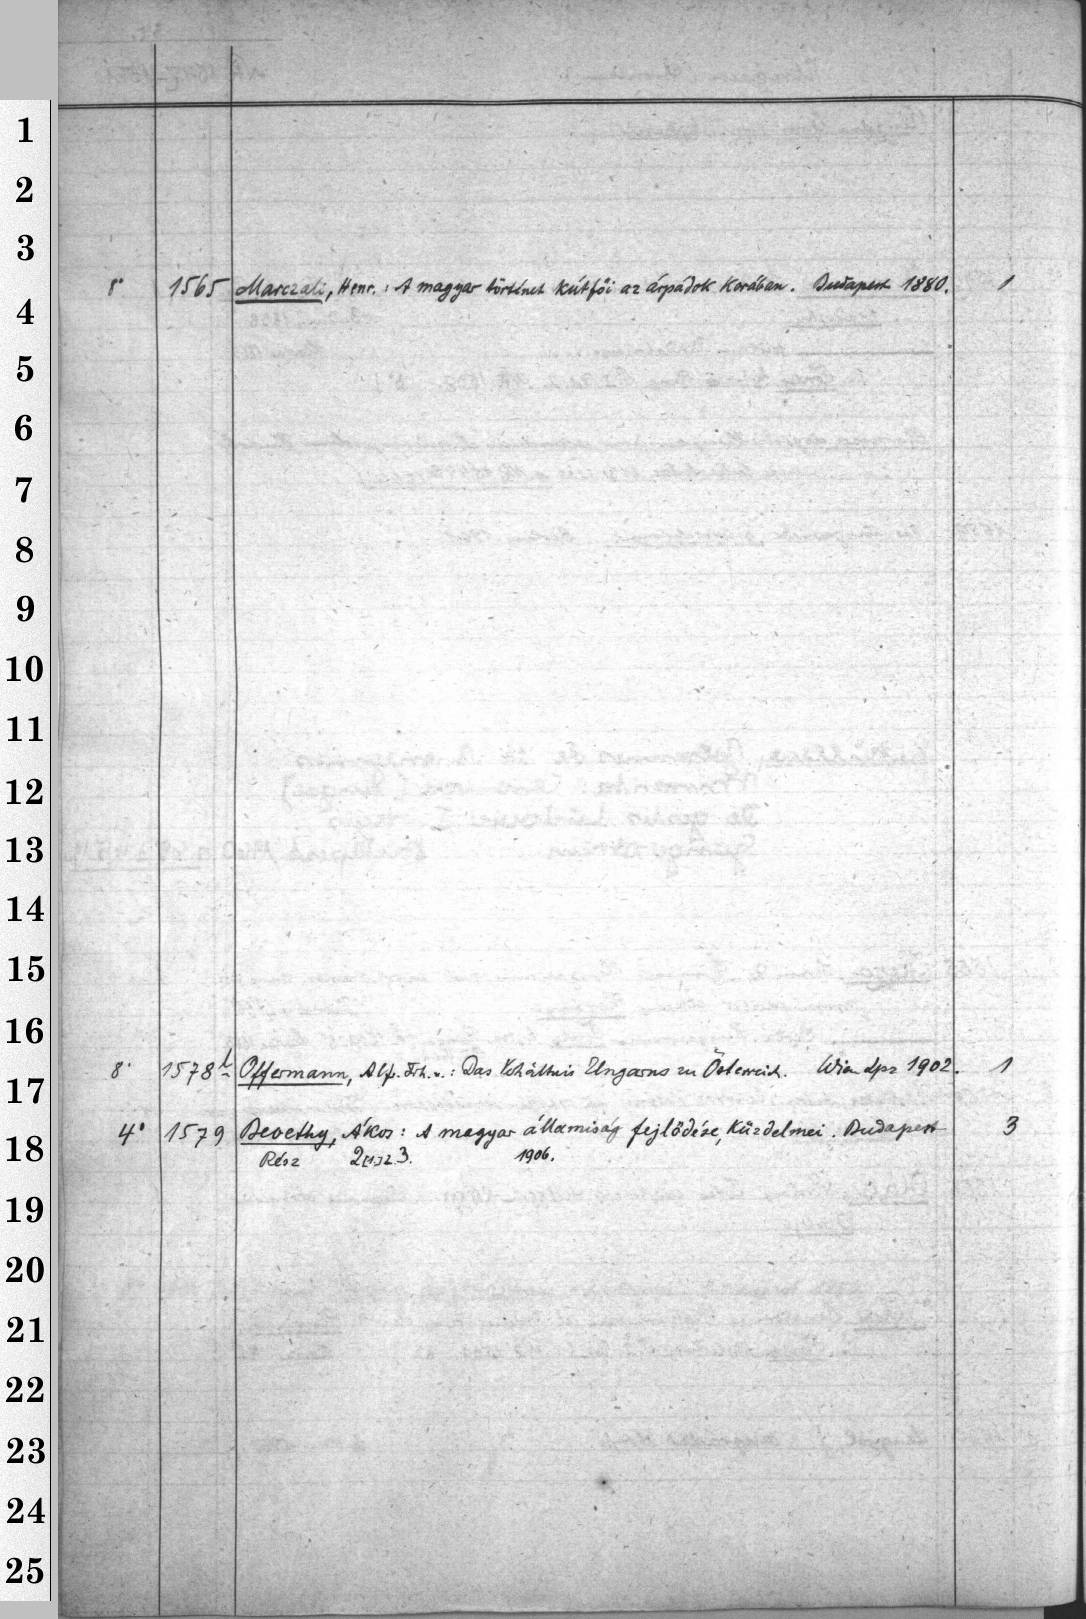 1
2
3
8° 1565 Marczali, Henr.: A magyar történet kútfői az árpádok korában. Budapest 1880. 1
4
5
6
7
8
9
10
11
12
13
14
15
16
8° 1578 Offermann, Alf. Frh. v.: Das Verhältnis Ungarns zu Österreich. Wien Lpz 1902. 1
17
4° 1579 Beoethy, Ákos: A magyar államiság fejlődése, küzdelmei. Budapest 3
18
Rész 2 3. 1906.
19
20
21
22
23
24
25